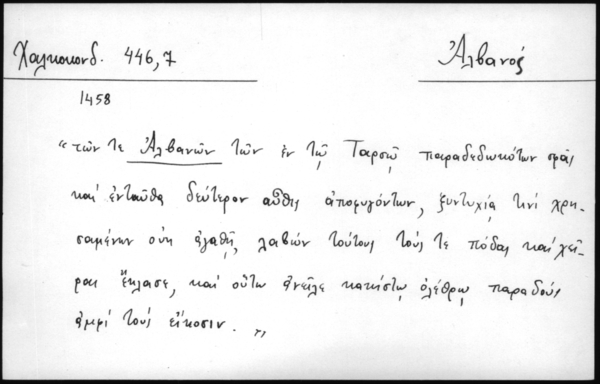 Χαλκοκονδ. 446,7
Ἀλβανός
1458
"τῶν τε Ἀλβανῶν τῶν ἐν τῷ Ταρσῷ παραδεδωκότων σφᾶς
καὶ ἐνταῦθα δεύτερον αὖθις ἀποφυγόντων, ξυντυχίᾳ τινί χρη-
σαμένων οὐκ ἀγαθῇ, λαβών τούτους τούς τε πόδας καί χεῖ-
ρας ἔκλασε, καί οὕτω ἀνεῖλε κακίστῳ ὀλέθρῳ παραδούς
ἀμφί τούς εἴκοσιν.